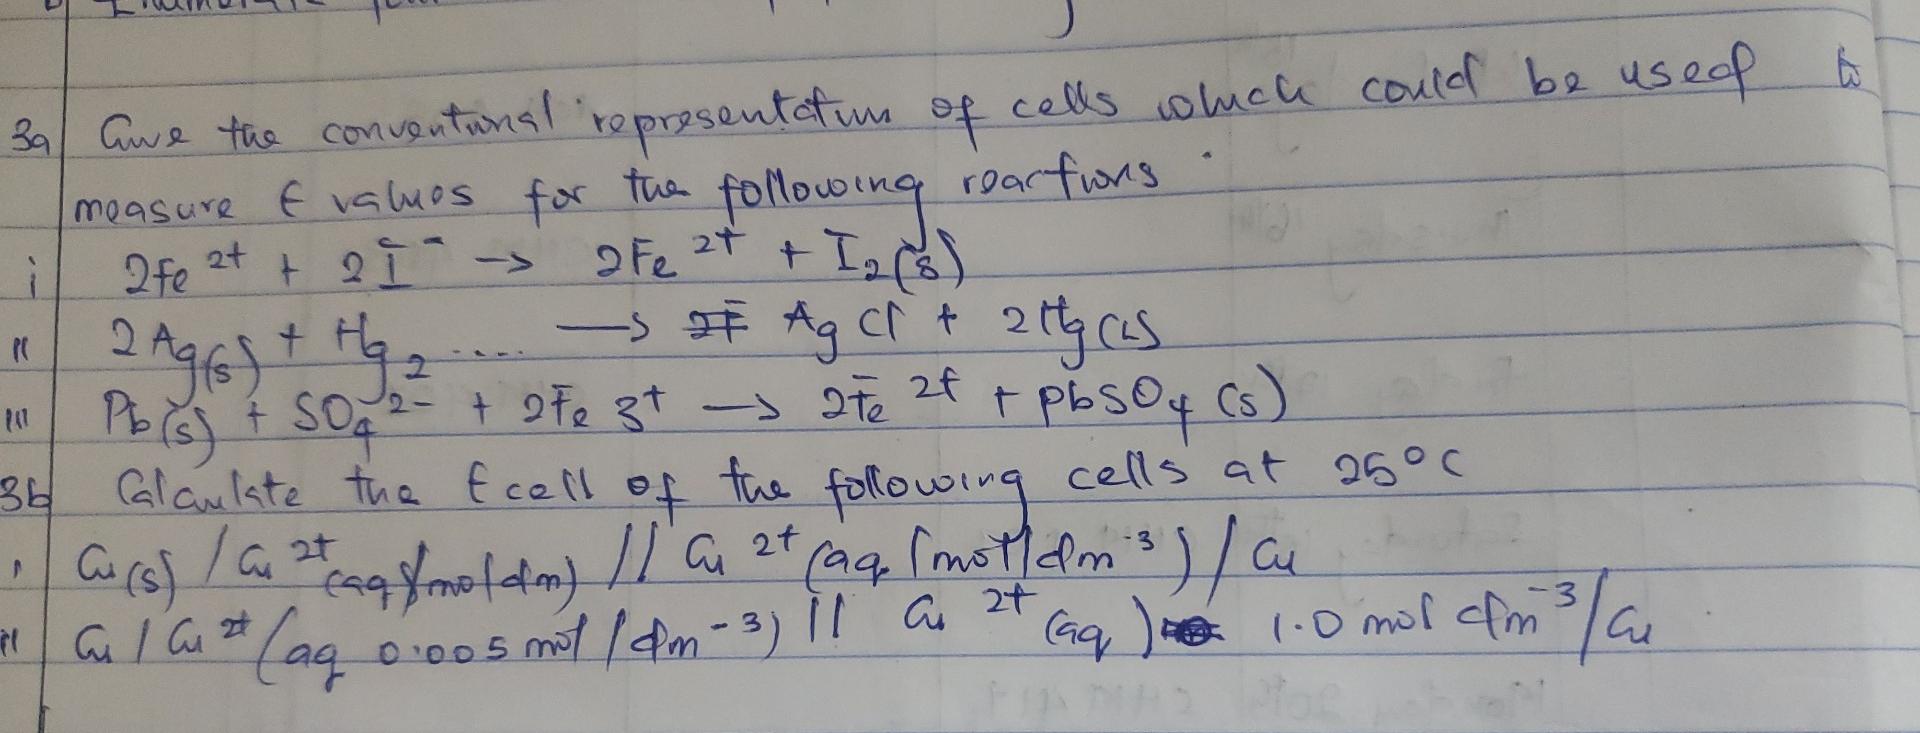 3a Give the conventional representation of cells which could be used to
measure E values for the following reactions.
i 2Fe 2+ + 2I - -> 2Fe 2+ + I2(s)
ii 2Ag(s) + Hg2 ..... -> AgCl + 2Hg(l)
iii Pb(s) + SO4 2- + 2Fe 3+ -> 2Fe 2+ + PbSO4 (s)
3b Calculate the Ecell of the following cells at 25°C
i Cu(s) / Cu 2+ (aq mol dm) // Cu 2+ (aq 1mol/dm-3) / Cu
ii Cu / Cu 2+ (aq 0.005 mol / dm-3) // Cu 2+ (aq) 1.0 mol dm-3 / Cu